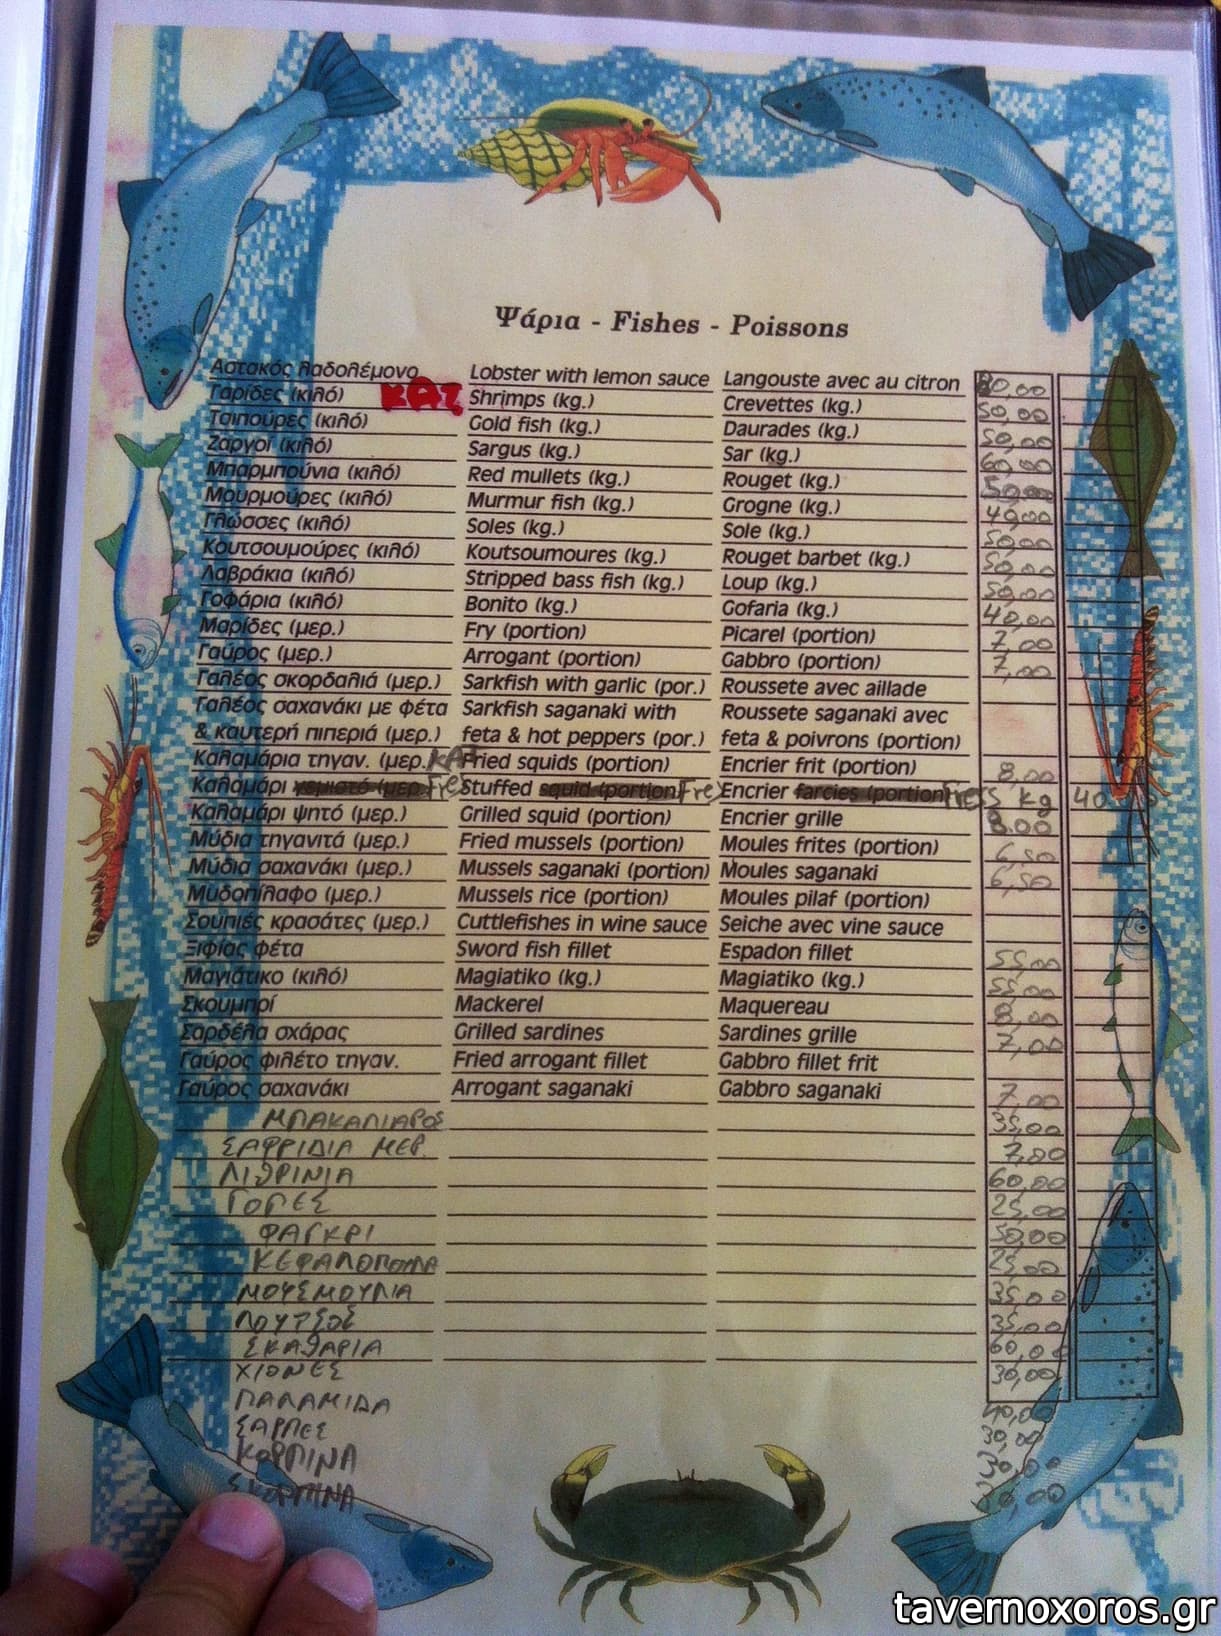 Ψάρια - Fishes - Poissons
Αστακός λαδολέμονο Lobster with lemon sauce Langouste avec au citron 80,00
Γαρίδες (κιλό) ΚΑΤ. Shrimps (kg.) Crevettes (kg.) 50,00
Τσιπούρες (κιλό) Gold fish (kg.) Daurades (kg.) 50,00
Ζαργοί (κιλό) Sargus (kg.) Sar (kg.) 60,00
Μπαρμπούνια (κιλό) Red mullets (kg.) Rouget (kg.) 50,00
Μουρμούρες (κιλό) Murmur fish (kg.) Grogne (kg.) 40,00
Γλώσσες (κιλό) Soles (kg.) Sole (kg.) 50,00
Κουτσουμούρες (κιλό) Koutsoumoures (kg.) Rouget barbet (kg.) 50,00
Λαβράκια (κιλό) Stripped bass fish (kg.) Loup (kg.) 50,00
Γοφάρια (κιλό) Bonito (kg.) Gofaria (kg.) 40,00
Μαρίδες (μερ.) Fry (portion) Picarel (portion) 7,00
Γαύρος (μερ.) Arrogant (portion) Gabbro (portion) 7,00
Γαλέος σκορδαλιά (μερ.) Sarkfish with garlic (por.) Roussete avec aillade
Γαλέος σαχανάκι με φέτα Sarkfish saganaki with Roussete saganaki avec
& καυτερή πιπεριά (μερ.) feta & hot peppers (por.) feta & poivrons (portion)
Καλαμάρια τηγαν. (μερ. ΚΑΤ Fried squids (portion) Encrier frit (portion) 8,00
Καλαμάρι γεμιστό (μερ. Fres Stuffed squid (portion) Fres Encrier farcies (portion) Fres kg 40
Καλαμάρι ψητό (μερ.) Grilled squid (portion) Encrier grille 8.00
Μύδια τηγανιτά (μερ.) Fried mussels (portion) Moules frites (portion) 6,50
Μύδια σαχανάκι (μερ.) Mussels saganaki (portion) Moules saganaki 6,50
Μυδοπίλαφο (μερ.) Mussels rice (portion) Moules pilaf (portion)
Σουπιές κρασάτες (μερ.) Cuttlefishes in wine sauce Seiche avec vine sauce
Ξιφίας φέτα Sword fish fillet Espadon fillet 55,00
Μαγιάτικο (κιλό) Magiatiko (kg.) Magiatiko (kg.) 55,00
Σκουμπρί Mackerel Maquereau 8,00
Σαρδέλα σχάρας Grilled sardines Sardines grille 7,00
Γαύρος φιλέτο τηγαν. Fried arrogant fillet Gabbro fillet frit
Γαύρος σαχανάκι Arrogant saganaki Gabbro saganaki 7,00
ΜΠΑΚΑΛΙΑΡΟΣ 35,00
ΣΑΦΡΙΔΙΑ ΜΕΡ. 7,00
ΛΙΘΡΙΝΙΑ 60,00
ΓΟΠΕΣ 25,00
ΦΑΓΚΡΙ 50,00
ΚΕΦΑΛΟΠΟΥΛΑ 25,00
ΜΟΥΣΜΟΥΛΙΑ 35,00
ΛΟΥΤΣΟΣ 35,00
ΣΚΑΘΑΡΙΑ 60,00
ΧΙΟΝΕΣ 30,00
ΠΑΛΑΜΙΔΑ 40,00
ΣΑΡΠΕΣ 30,00
ΚΟΡΠΙΝΑ 30,00
ΣΚΟΡΠΙΝΑ
tavernoxoros.gr